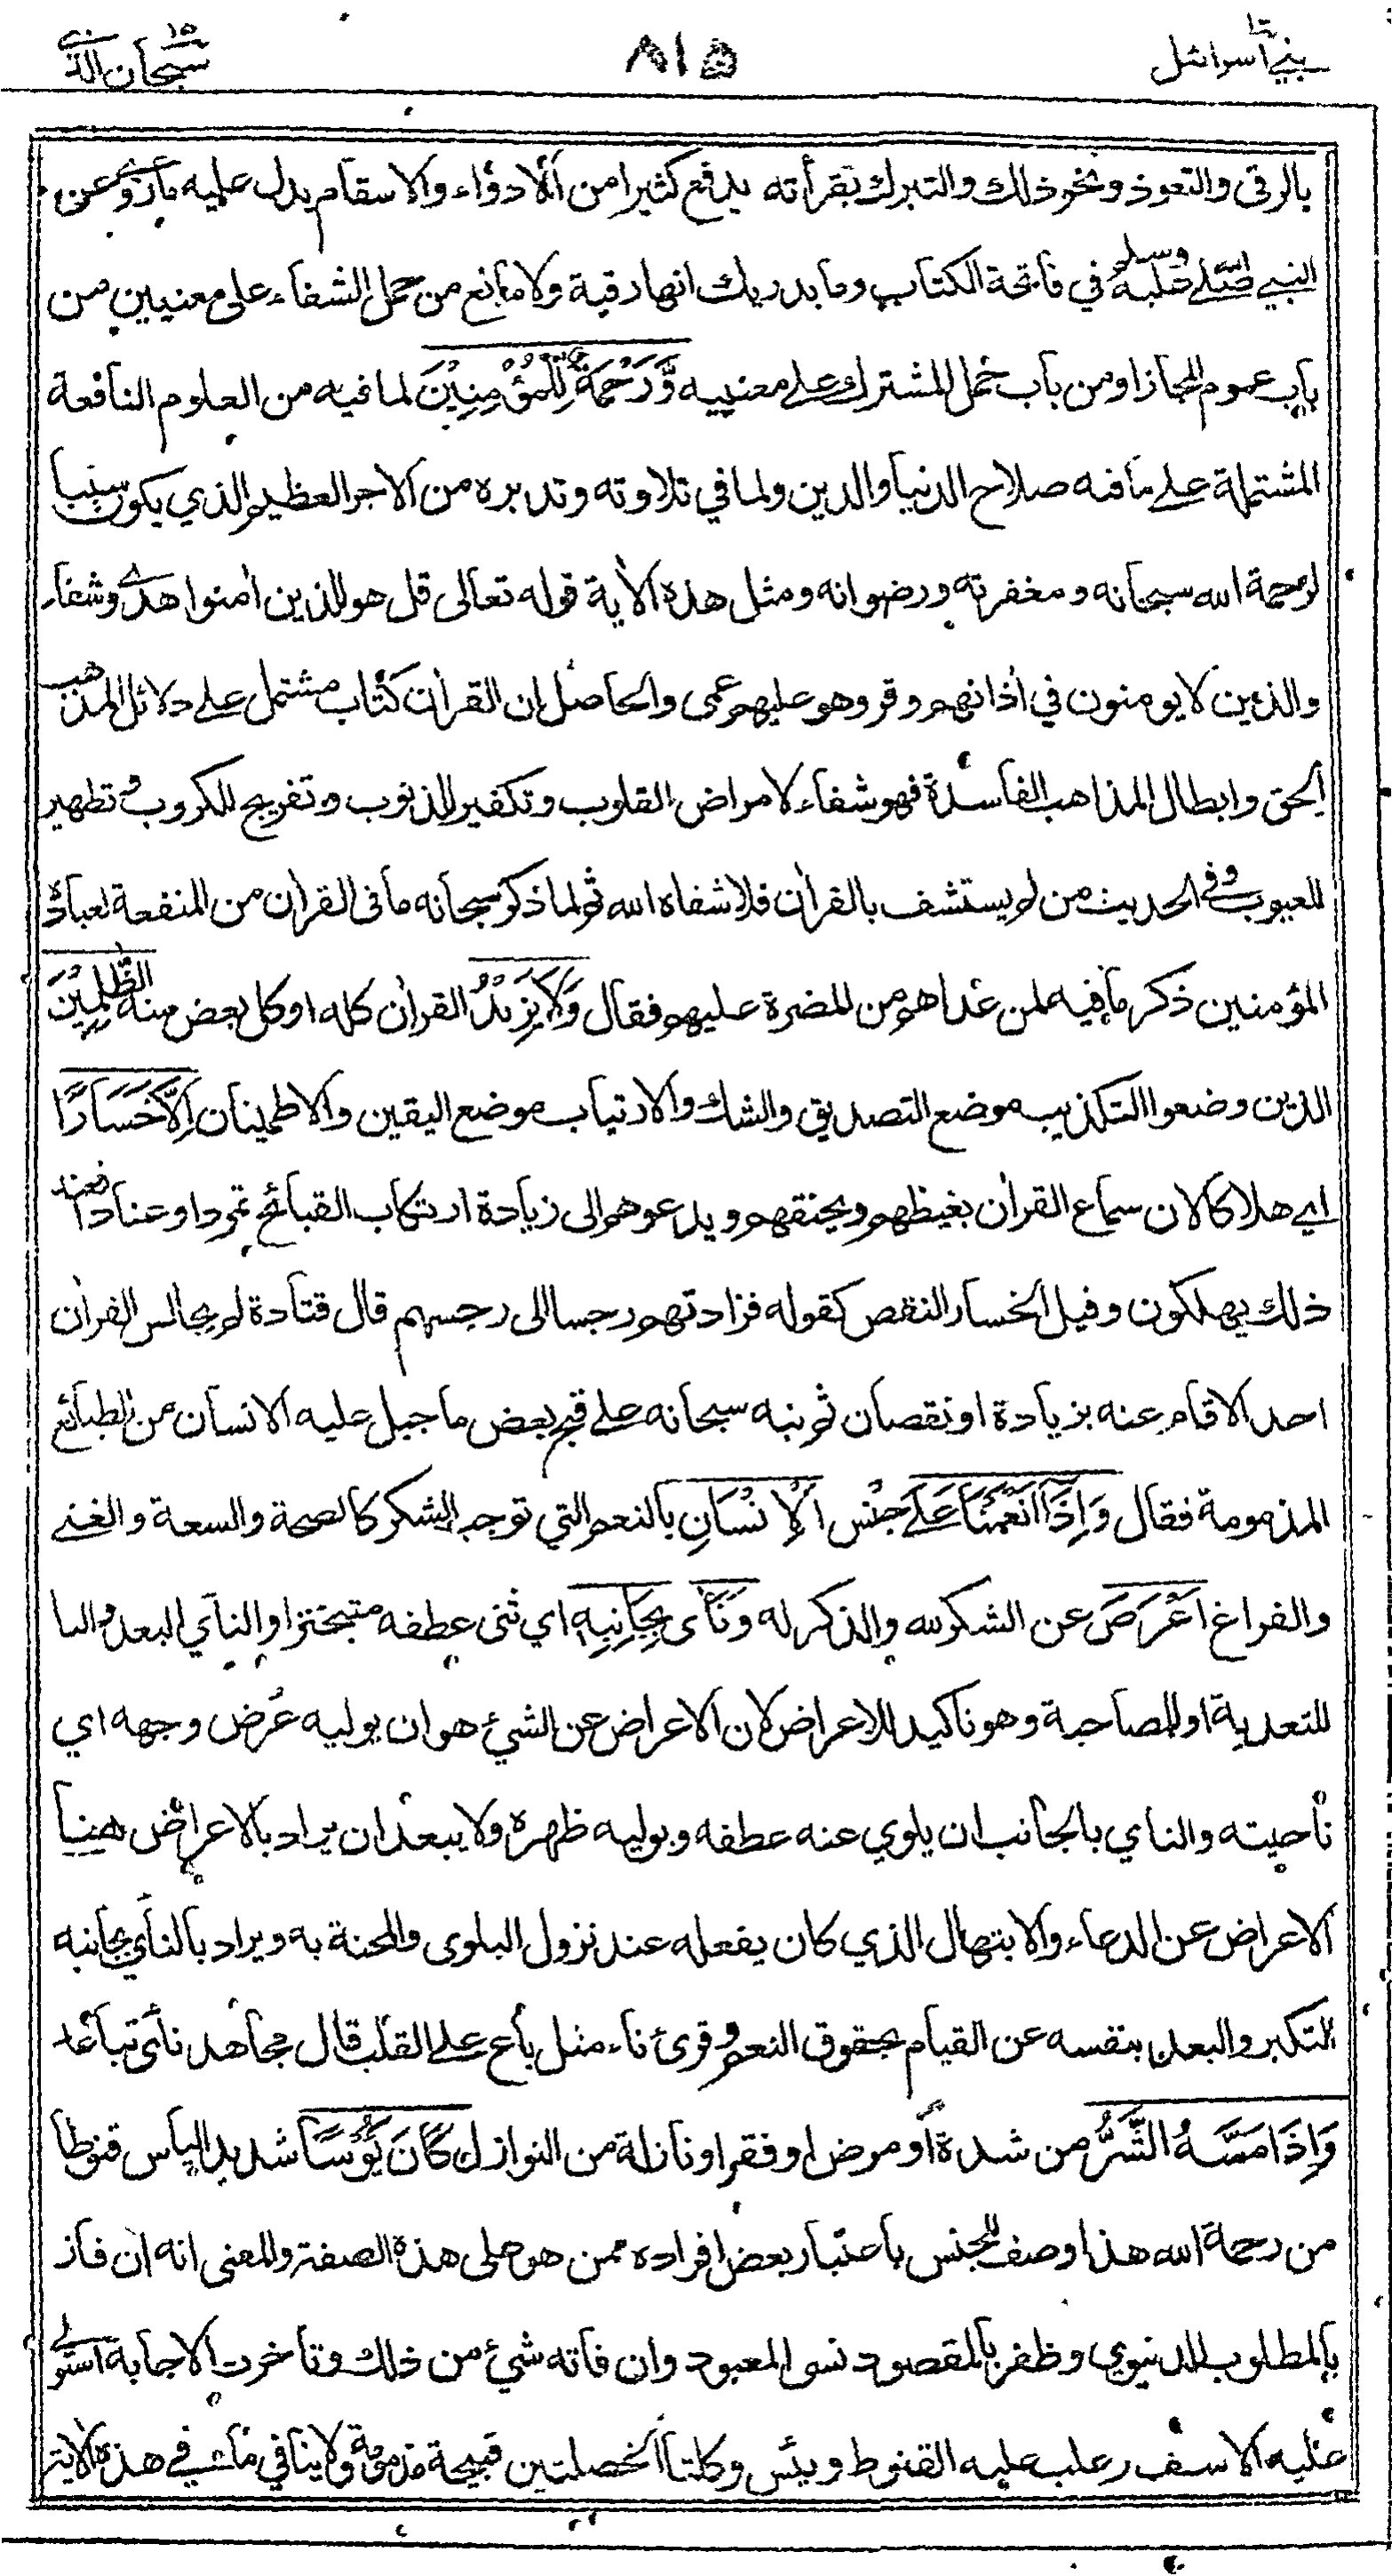 بني اسرائيل ١٧
٨١٥
سبحان الذي ١٥
بالرقى والتعوذ ونحو ذلك والتبرك بقرأته يدفع كثيرا من الادواء والاسقام يدل عليه ما روي عن
النبي صلى الله عليه وسلم في فاتحة الكتاب وما يدريك انها رقية ولا مانع من حمل الشفاء على معنيين من
باب عموم المجاز او من باب حمل المشترك على معنييه وَّرَحْمَةٌ لِّلْمُؤْمِنِيْنَ لما فيه من العلوم النافعة
المشتملة على ما فيه صلاح الدنيا والدين ولما في تلاوته وتدبره من الاجر العظيم الذي يكون سببا
لرحمة الله سبحانه ومغفرته ورضوانه ومثل هذه الاية قوله تعالى قل هو للذين اٰمنوا هدى وشفاء
والذين لا يومنون في اٰذانهم وقر وهو عليهم عمى والحاصل ان القراٰن كتاب مشتمل على دلائل المذهب
الحق وابطال المذاهب الفاسدة فهو شفاء لامراض القلوب وتكفير للذنوب وتفريج للكروب وتطهير
للعيوب وفي الحديث من لم يستشف بالقراٰن فلا شفاه الله ثم لما ذكر سبحانه ما في القراٰن من المنفعة لعباده
المؤمنين ذكر ما فيه لمن عداهم من المضرة عليهم فقال وَلَا يَزِيْدُ القراٰن كله او كل بعض منه الظّٰلِمِيْنَ
الذين وضعوا التكذيب موضع التصديق والشك والارتياب موضع اليقين والاطمينان اِلَّا خَسَارًا
اي هلاكا لان سماع القراٰن يغيظهم ويحنقهم ويدعوهم الى زيادة ارتكاب القبائح تمردا وعنادا فعند
ذلك يهلكون وقيل الخسار النقص كقوله فزادتهم رجسا الى رجسهم قال قتادة لم يجالس القراٰن
احد الا قام عنه بزيادة او نقصان ثم نبه سبحانه على قبح بعض ما جبل عليه الانسان من الطبائع
المذمومة فقال وَاِذَا اَنْعَمْنَا عَلَى جنس الْاِنْسَانِ بالنعم التي توجب الشكر كالصحة والسعة والغنى
والفراغ اَعْرَضَ عن الشكر لله والذكر له وَنَاٰى بِجَانِبِهٖ اي ثنى عطفه متبخترا والناي البعد والبا
للتعدية او للمصاحبة وهو تاكيد للاعراض لان الاعراض عن الشيء هو ان يوليه عُرض وجهه اي
ناحيته والناي بالجانب ان يلوي عنه عطفه ويوليه ظهره ولا يبعد ان يراد بالاعراض هنا
الاعراض عن الدعاء والابتهال الذي كان يفعله عند نزول البلوى والمحنة به ويراد بالناي بجانبه
التكبر والبعد بنفسه عن القيام بحقوق النعم وقرئ ناء مثل باع على القلب قال مجاهد نأى تباعد
وَاِذَا مَسَّهُ الشَّرُّ من شدة او مرض او فقر او نازلة من النوازل كَانَ يَؤُسًا شديد الياس قنوطا
من رحمة الله هذا وصف للجنس باعتبار بعض افراده ممن هو على هذه الصفة والمعنى انه ان فاز
بالمطلوب الدنيوي وظفر بالمقصود نسى المعبود وان فاته شيء من ذلك وتاخرت الاجابة استولى
عليه الاسف وغلب عليه القنوط ويئس وكلتا الخصلتين قبيحة مذمومة ولا ينافي ما في هذه الاية